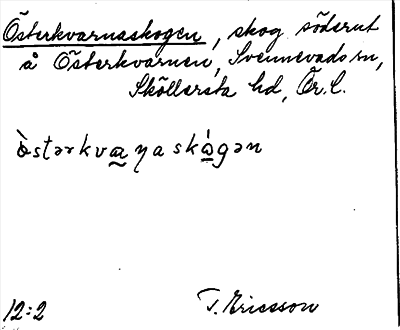 Österkvarnaskogen, skog söderut
å Österkvarnen, Svennevads sn,
Sköllersta hd, Ör. l.
òstərkvaꞃaskógən
12:2
T. Ericsson